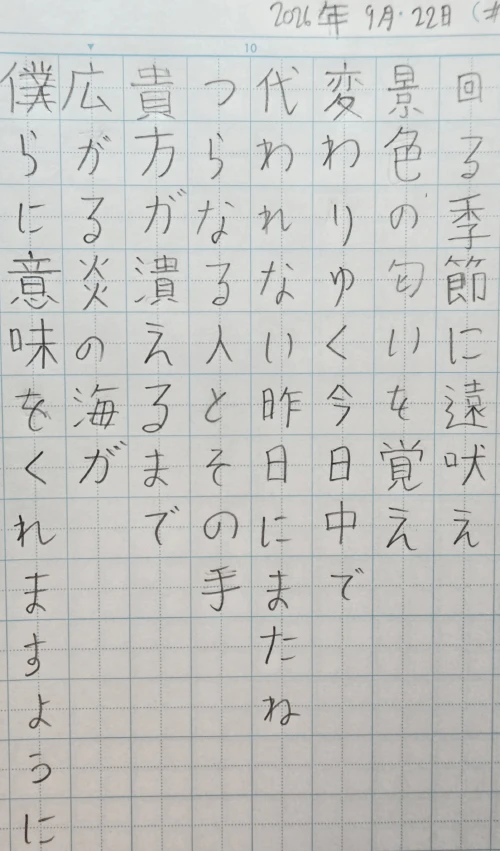 2026年 9月・22日 (
回る季節に遠吠え
景色の匂いを覚え
変わりゆく今日中で
代われない昨日にまたね
つらなる人とその手
貴方が潰えるまで
広がる炎の海が
僕らに意味をくれますように
10